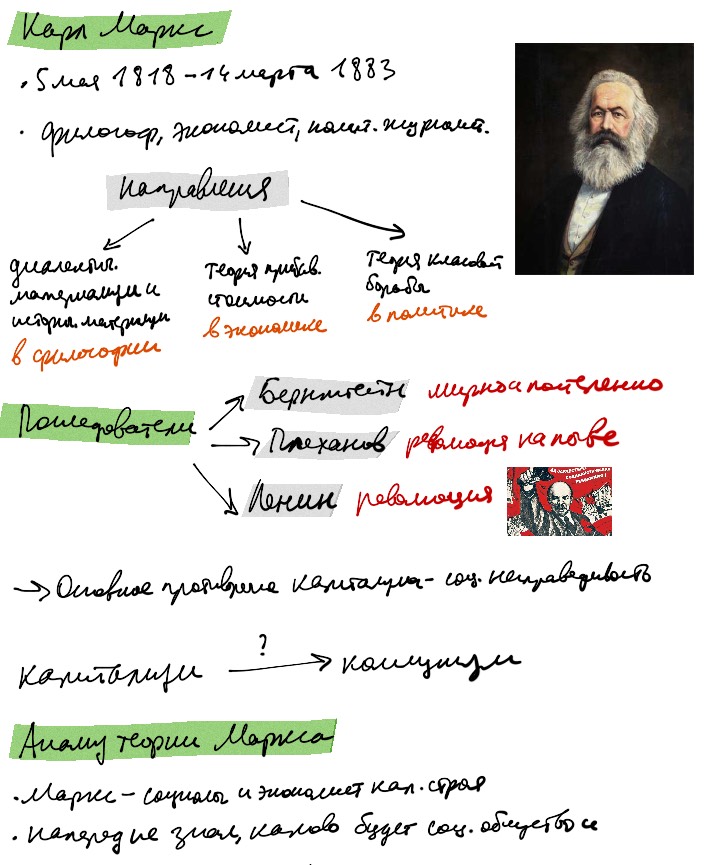 Карл Маркс
• 5 мая 1818 – 14 марта 1883
• философ, экономист, полит. журналист.
направления
диалектич.
материализм и
историч. материализм
в философии
теория прибав.
стоимости
в экономике
теория классовой
борьбы
в политике
Последователи
Бернштейн мирно и постепенно
Плеханов революция на пове
Ленин революция
СОЦИАЛИСТИЧЕСКАЯ
→ Основное противоречие капитализма – соц. несправедливость
?
капитализм → комунизм
Анализ теории Маркса
• Маркс – социолог и экономист кап. строя
• наперед не знал, каково будет соц. общество и